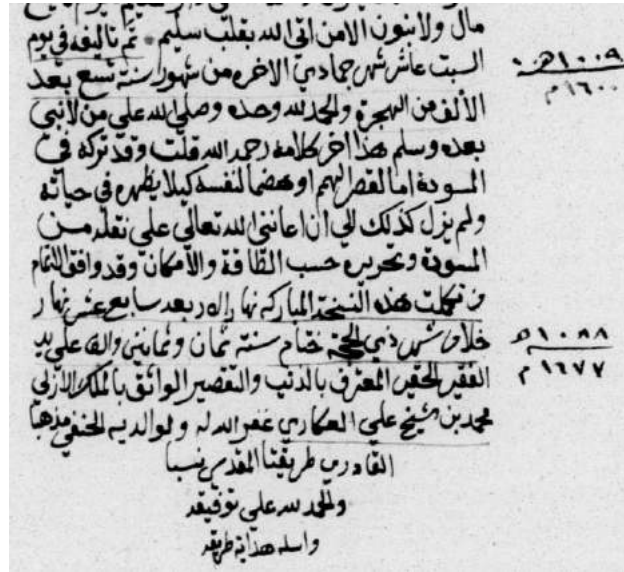 مال ولا بنون الا من اتى الله بقلب سليم تم تاليفه في يوم
السبت عاشر شهر جمادي الاخره من شهور سنة تسع بعد
١٠٠٩ هـ
١٦٠٠ م
الألف من الهجرة والحمد لله وحده وصلى الله على من لا نبي
بعده وسلم هذا اخر كلامه رحمه الله قلت وقد تركه في
المسودة اما لقصر الهمم او هضما لنفسه كيلا يظهره في حياته
ولم يزل كذلك الى ان اعانني الله تعالى على نقله من
المسودة وتحريره حسب الطاقة والأمكان وقد وافق التمام
وتكملت هذه النسخة المباركه نهار بعد سابع عشر نهار
خلا من شهر ذي الحجة ختام سنة ثمان وثمانين والف على يد
١٠٨٨ هـ
١٦٧٧ م
الفقير الحقير المعترف بالذنب والتقصير الواثق بالملك الازلي
محمد بن الشيخ علي العكاري غفر الله له ولوالديه الحنفي مذهبا
القادري طريقتا المقدسي نسبا
والحمد لله على توفيقه
هداية طريقه